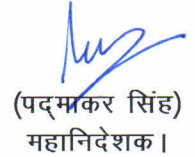 (पद्माकर सिंह)
महानिदेशक।